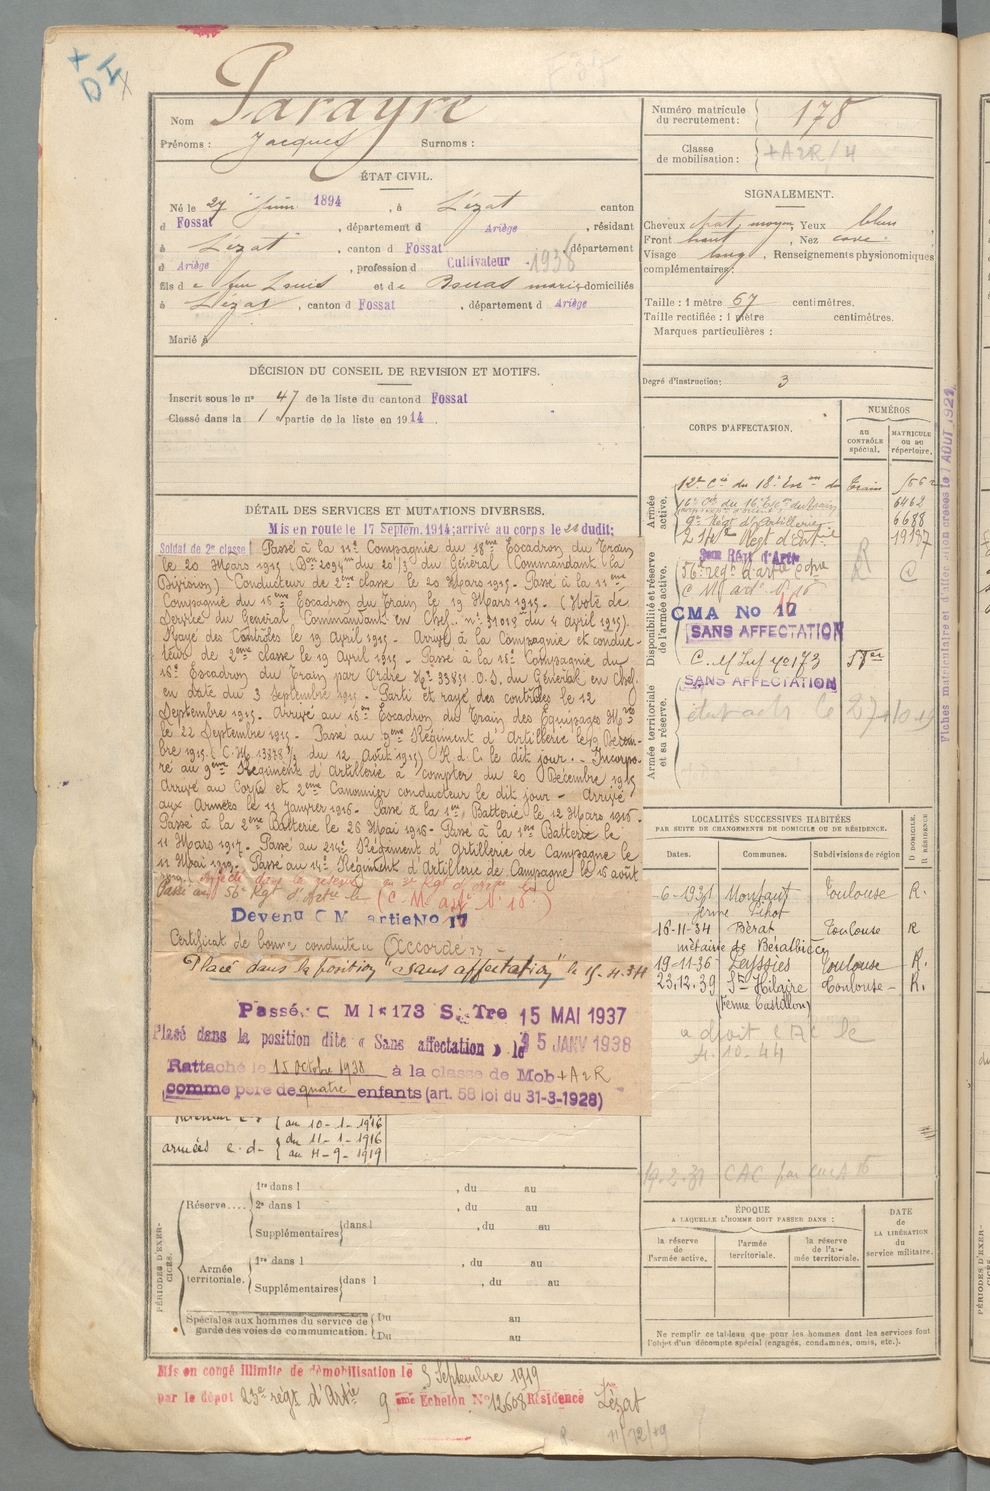 + D I x
Nom Parayre
Prénoms : Jacques Surnoms :
Numéro matricule du recrutement : 178
Classe de mobilisation : +A2R/4
ÉTAT CIVIL.
Né le 27 Juin 1894, à Lézat canton
d Fossat, département d Ariège, résidant
à Lézat, canton d Fossat, département
d Ariège, profession d Cultivateur 1938
fils de feu Louis et de marie, domiciliés
à Lézat, canton d Fossat, département d Ariège
Marié à
SIGNALEMENT.
Cheveux chat. moyen, Yeux bleus
Front haut, Nez cave.
Visage long, Renseignements physionomiques
complémentaires :
Taille : 1 mètre 67 centimètres.
Taille rectifiée : 1 mètre centimètres.
Marques particulières :
DÉCISION DU CONSEIL DE REVISION ET MOTIFS.
Inscrit sous le n° 47 de la liste du canton d Fossat
Classé dans la 1 e partie de la liste en 1914.
Degré d'instruction : 3
CORPS D'AFFECTATION.
NUMÉROS
AU CONTRÔLE spécial.
MATRICULE OU AU répertoire.
Armée active.
12e Cie du 18e Esc on du train
16e Cie du 16e Esc on du Train 6462
9e Régt d'Artillerie 6688
214e Régt d'Art ie 19137
Disponibilité et réserve de l'armée active.
56e régt d'art ie
C M art. N° 16
CMA No 17
SANS AFFECTATION
C. M Inf n° 173
SANS AFFECTATION
Armée territoriale et sa réserve.
Fiches matricule et d'affectation créées le 7 AOUT 1921
DÉTAIL DES SERVICES ET MUTATIONS DIVERSES.
Mis en route le 17 Septem. 1914; arrivé au corps le 20 dudit;
Soldat de 2e classe Passé à la 11e Compagnie du 18ème Escadron du Train
le 20 Mars 1915 (Don 2094 du 20/3 du Général Commandant la
Division) Conducteur de 2ème classe le 20 Mars 1915. Passé à la 11ème
Compagnie du 16ème Escadron du Train le 19 Mars 1915. (Note de
Service du Général Commandant en Chef. n° 31018 du 4 avril 1915)
Rayé des Contrôles le 19 Avril 1915. Arrivé à la Compagnie et conduc-
teur de 2ème classe le 19 Avril 1915. Passé à la 16e Compagnie du
16e Escadron du Train par Ordre N° 33851 O.D. du Général en Chef.
en date du 3 septembre 1915. Parti et rayé des contrôles le 12
Septembre 1915. Arrivé au 16ème Escadron du Train des Equipages Mres
le 22 Septembre 1915. Passé au 9ème Régiment d'Artillerie le 19 Décem-
bre 1915 (C.M. 13878 du 12 Août 1915) R d C le dit jour. Incorpo-
ré au 9ème Régiment d'Artillerie à compter du 20 Décembre 1915
Arrivé au Corps et 2ème Canonnier conducteur le dit jour - Arrivé
aux Armées le 11 janvier 1916. Passé à la 1re Batterie le 12 Mars 1916.
Passé à la 2ème Batterie le 26 Mai 1916. Passé à la 1ère Batterie le
11 Mars 1917. Passé au 214e Régiment d'Artillerie de Campagne le
11 Mai 1919. Passé au 14e Régiment d'Artillerie de Campagne le 15 août
1919. Affecté dans la réserve au
Passé au 56e Régt d'Art ie le (C. M. art. N° 16)
Devenu C M artie No 17
Certificat de bonne conduite "Accordé"
Placé dans la position "sans affectation" le 15.4.34
Passé. C M I 173 S. Tre 15 MAI 1937
Placé dans la position dite « Sans affectation » le 15 JANV 1938
Rattaché le 15 Octobre 1938 à la classe de Mob +A2R
comme père de quatre enfants (art. 58 loi du 31-3-1928)
Intérieur c-d- { au 10-1-1916
armées c-d- { du 11-1-1916
au 4-9-1919
LOCALITÉS SUCCESSIVES HABITÉES
PAR SUITE DE CHANGEMENTS DE DOMICILE OU DE RÉSIDENCE.
Dates. Communes. Subdivisions de région D. DOMICILE. R. RÉSIDENCE
6-1931 Montaut Toulouse R.
ferme Pihot
16-11-34 Bérat Toulouse R
métairie de
19-11-36 Peyssies Toulouse R.
23.12.39 St Hilaire Toulouse R.
(Ferme Castillon)
a droit c
4.10-44
19.2.31 CAC par
PÉRIODES D'EXERCICES.
Réserve.... 1re dans l , du au
2e dans l , du au
Supplémentaires dans l , du au
Armée territoriale. 1re dans l , du au
Supplémentaires dans l , du au
Spéciales aux hommes du service de garde des voies de communication. Du au
Du au
ÉPOQUE
A LAQUELLE L'HOMME DOIT PASSER DANS :
la réserve de l'armée active.
l'armée territoriale.
la réserve de l'armée territoriale.
DATE DE LA LIBÉRATION du service militaire.
Ne remplir ce tableau que pour les hommes dont les services font
l'objet d'un décompte spécial (engagés, condamnés, omis, etc.).
Mis en congé illimité de démobilisation le 5 Septembre 1919
par le dépôt 23e régt d'Artie 9 ème Echelon N° 12608 Résidence Lézat